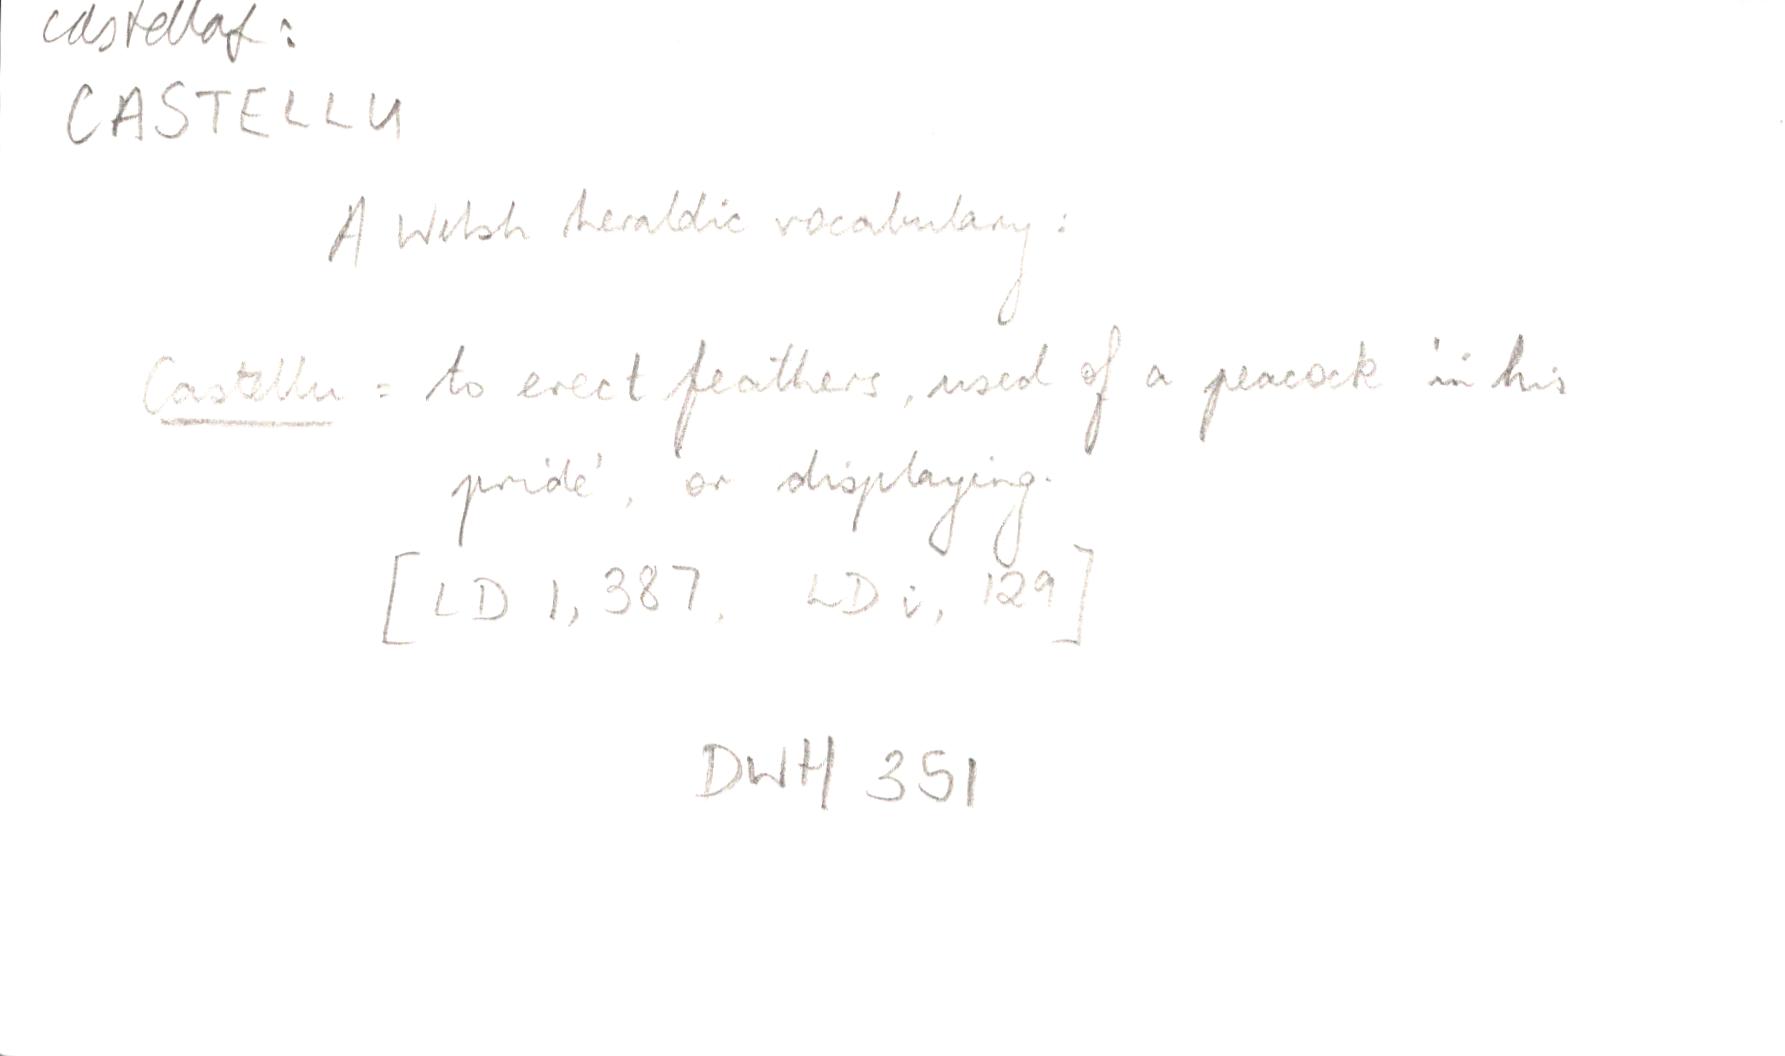 castellaf:
CASTELLU
A Welsh heraldic vocabulary:
Castellu = to erect feathers, used of a peacock 'in his
pride', or displaying.
[LD 1, 387, LD i, 129]
DWH 351